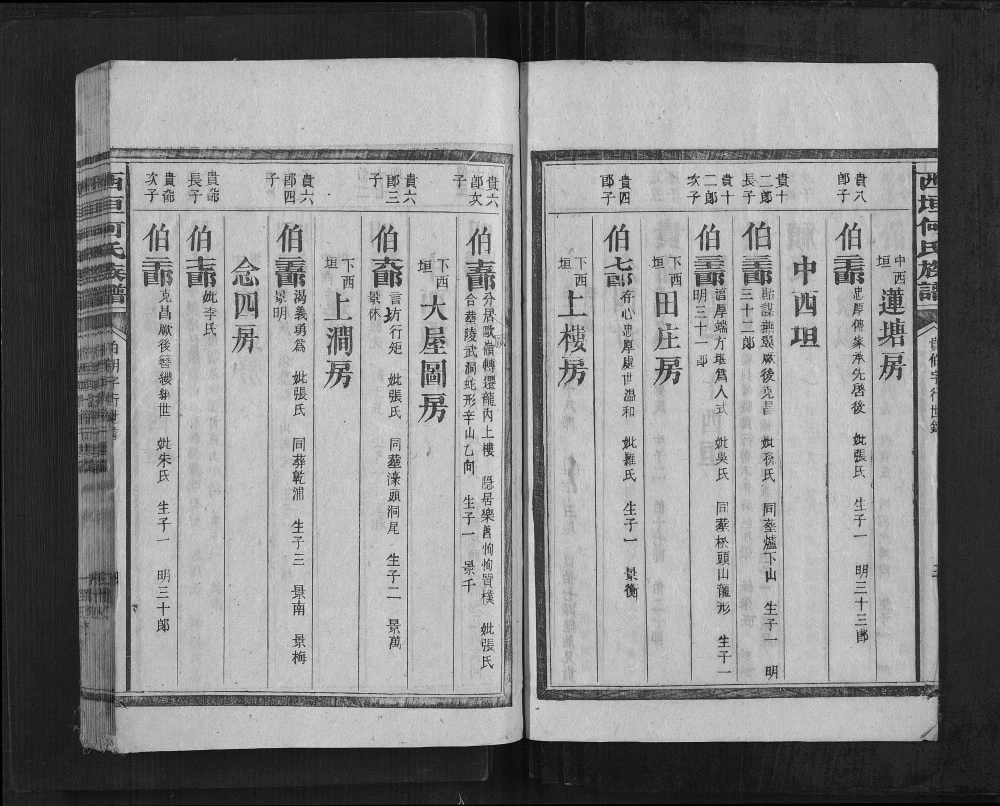 西垣何氏族譜
中西垣 蓮塘房
貴八郎子
忠厚傳家承先啓後 妣張氏 生子一 明三十三郎
中西垣
貴十二郎長子
貽謀燕翼厥後克昌 妣孫氏 同塟爐下山 生子一 明三十二郎
貴十二郎次子
渾厚端方堪為人式 妣吳氏 同塟松頭山龍形 生子一 明三十一郎
下西垣 田庄房
貴四郎子
伯七郎 存心忠厚處世温和 妣羅氏 生子一 景衡
下西垣 上樓房
貴六郎次子一
分居歐嶺轉遷龍內上樓 隱居樂舊恂恂質樸 妣張氏 合塟陵武洞蛇形辛山乙向 生子一 景千
下西垣 大屋圖房
貴六郎三子
言坊行矩 妣張氏 同塟濠頭洞尾 生子二 景萬 景休
下西垣 上澗房
貴六郎四子
渴義勇為 妣張氏 同葬乾浦 生子三 景南 景梅 景明
念四房
長子
妣李氏
次子
克昌厥後簪纓繼世 妣朱氏 生子一 明三十郎
西垣何氏族譜